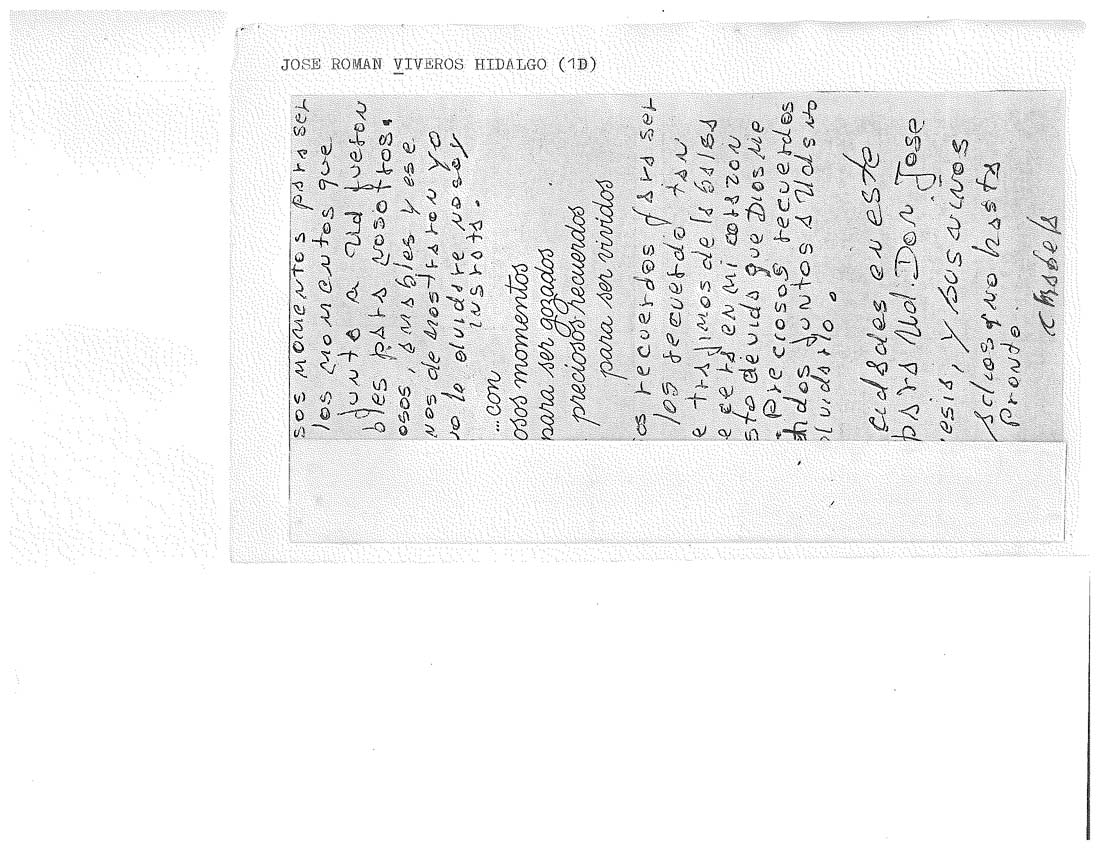 JOSE ROMAN VIVEROS HIDALGO (1D)
sos momentos para ser
los momentos que
junto a Ud fueron
bles para nosotros.
osos, amables y ese
nos demostraron yo
no lo olvidare no soy
insrata.
...con
osos momentos
para ser gozados
preciosos recuerdos
para ser vividos
os recuerdos para ser
los recuerdo tan
e trajimos de la
e cera en mi corazon
sto de vida que Dios me
Preciosos recuerdos
juntos a Ud no
olvidarlo.
cidades en este
para Ud. Don Jose
esis, y sus niños
no hasta
Pronto.